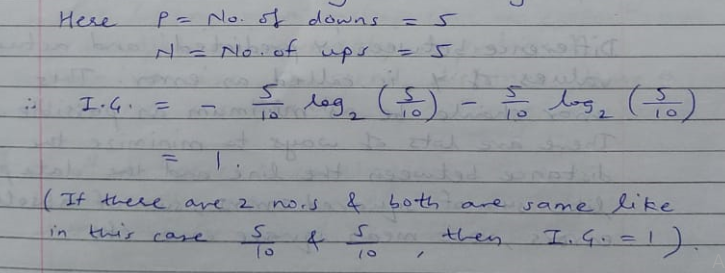 Here P = No. of downs = 5
N = No. of ups = 5
∴ I.G. = - 5/10 log₂ (5/10) - 5/10 log₂ (5/10)
= 1.
(If there are 2 no.s & both are same like
in this case 5/10 & 5/10, then I.G. = 1).